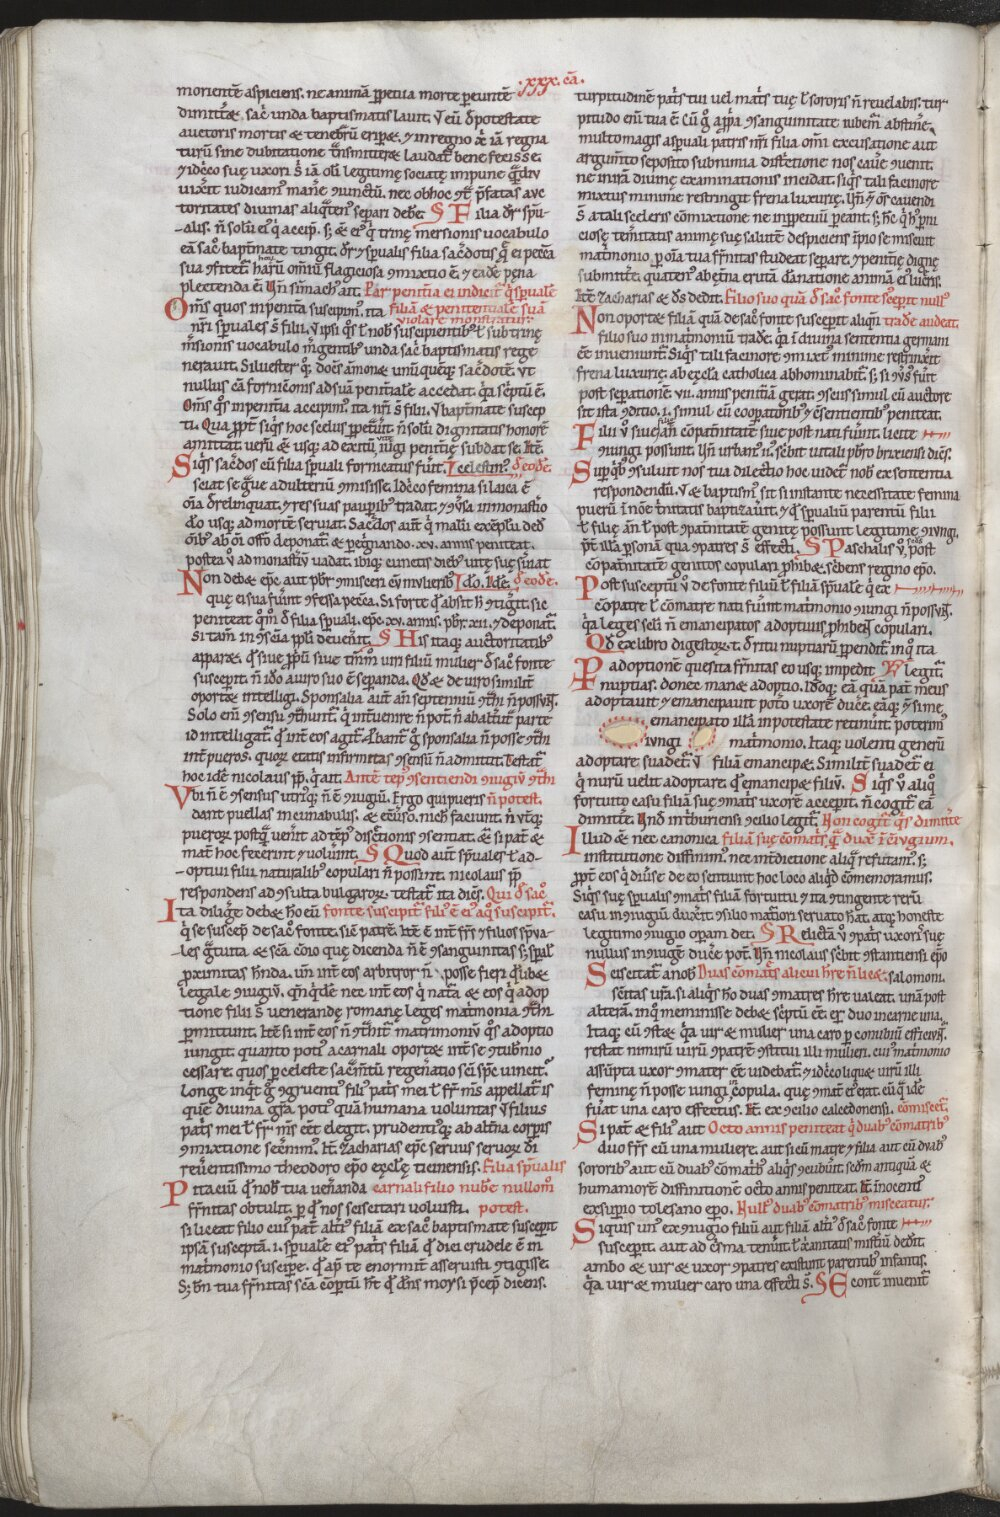 .xxx. cā.
morientē aspiciens. ne animā ꝑpetua morte pereuntē
dimittꝫ&, sac̄ unda baptismatis lauit. v̄ eū d̓ potestate
auctoris mortis & tenebrarū eripꝫ, ⁊ in regno
turū sine dubitatione laudat̄ bene fecisse.
⁊ idc̄o suę uxori s̄ iā olī legitime sociatę impune
uixerit iudicam̄ manꝫ nec ob hoc
toritates diuinas aliq̄ten̄ separi deb&. § Filia dr̄ spū
alis. n̄ solū ei̓ q̓ accip̄. s; & ei̓ q̓ trinę mersionis uocabulo
eā sac̄ bapt̄mate tingit. dr̄ ⁊ sp̄ualis filia sac̄dotis q̄ ei pecc̄a
sua ꝯfitet̄ harū omniū flagiciosa ꝯmixtio ē. ⁊ eadē pena
plectenda ē. Vn̄ simach̓ ait. Par penit̄ia ei indicit̄ q̓ sp̄uale
Om̄s quos in penit̄a suscipim̄. ita filiā & penitentiale sua
violare monstratur.
nr̄i sp̄uales s̄ filii. v̄t ipsi q̓s ł nob̓ suscipientib̓ ł sub trinę
m̄sionis uocabulo m̄gentib̓ unda sac̄ baptismatis rege
nerauit. Siluester q̓ꝫ docēs am̄onꝫ unūquēq; sac̄dotē. vt
nullus cā fornic̄onis ad suā penit̄iale accedat. q̓a sc̄ptū ē.
Om̄s q̓s in penit̄ia accipim̄. ita nr̄i s̄ filii. v̄t bapt̄mate suscep
ti. Qua ꝓpt̄ siq̓s hoc scelus ꝑpet̄uit. n̄ solū dignitatis honorē
amittat. uerū & usq; ad exitū iugi penit̄ię subdat se. It̄ē
Siq̓s sac̄dos cū filia sp̄uali fornicatus fuit. Celestin̄. d̓ eodē.
sciat se g̓ue adulteriū ꝯmisisse. Idc̄o femina si laica ē
oīa d̓relinquat. ⁊ res suas paupib̓ tradat. ⁊ ꝯuersa in monast̄io
dō usq; ad mortē seruiat. Sac̄dos aut̄ q̓ malū exēplū ded̄
oīb̓ ab oi offō deponat̄. & peg̓nando .xv. annis peniteat.
postea v̄ ad monast̄iū vadat. ibiq; cunctis dieb̓ uitę suę
Non debꝫ epc̄ aut pbr̄ misceri cū mulierib̓ Ido. It̄ē. d̓ eodē.
quę ei sua fuint ꝯfessa pecc̄a. Si forte q̓ absit h̄ ꝯtig̓it. sic
peniteat q̓m̄ d̓ filia sp̄uali. epc̄ .xv. annis. pbr̄ .xii. ⁊ deponat̄.
si tam̄ in ꝯscia ppl̄i deuen̄it. § His itaq; auct̄oritatib̓
apparꝫ. q̓ siue ꝓpriū siue uiri filiū mulier d̓ sac̄ fonte
suscepit. n̄ ido a uiro suo ē separanda. Qd̄ & de uiro similit̄
oportꝫ intelligi. Sponsalia aut̄ an̄ septenniū ꝯt̓hi n̄ possūt.
Solo eni ꝯsensu ꝯt̓hunt̄. q̓ int̄uenire n̄ pot̄. n̄ ab alt̓ut̓ parte
id intelligat̄. q̓ int̄ eos agit̄. ꝓbant̄ g̓ sponsalia n̄ posse ꝯt̓hi
int̄ pueros. quoꝝ etatis infirmitas ꝯsensū n̄ admittit. Testat̄
hoc idē nicolaus pp̄. q̓ ait. Ante tep̓ ꝯsentiendi ꝯiugiū ꝯt̓hi
Vbi n̄ ē ꝯsensus utriq;. n̄ ē ꝯiugiū. Ergo qui pueris n̄ potest.
dant puellas in cunabulis. & ec̄ūso. nich̄ faciunt. n̄ ut̓q;
pueroꝝ postq̄ ven̄it ad tēp̓ discr̄tionis ꝯsentiat. & si pat̄ &
mat̄ hoc fecerint ⁊ uoluint. § Quod aut̄ sp̄uales ł ad
optiui filii naturalib̓ copulari n̄ possint. nicolaus pp̄
respondens ad ꝯsulta bulgaroꝝ. testat̄ ita dicēs. Qui d̓ sac̄
Ita dilig̓e debꝫ ho eū fonte suscipit̄ fili̓ ē ei̓ a q̓ suscipit̄.
q̓ se suscep̄ de sac̄ fonte. sic̄ patrē. It̄ē ē int̄ fr̄s ⁊ filios sp̄ua
les g̓tuita & scā cōio que dicenda n̄ ē ꝯsanguinitas s; sp̄ual̄
proximitas hn̄da. un̄ int̄ eos arbitror n̄ posse fieri q̓libꝫ
legale ꝯiugiū. qn̄qdē nec int̄ eos q̓ nat̄a & eos q̓ adop
tione filii s̄ uenerandę romanę leges mat̄monia ꝯt̓hi
ꝑmittunt. It̄ē si int̄ eos n̄ ꝯt̓hit̄ matrimoniū q̓s adoptio
iungit. quanto poti̓ a carnali oportꝫ int̄ se ꝯtub̄nio
cessare. quos ꝑ celeste sac̄mētū regen̄atio sc̄i sp̄c uincit.
Longe inq̓t g̓ ꝯgruenti̓ fili̓ pat̄s mei ł fr̄ m̄s appellat̄ is
quē diuina gr̄a. poti̓ quā humana voluntas v̄t filius
pat̄s mei ł fr̄ m̄s eēt elegit. prudentiꝝ ab alt̄na corpis
ꝯmixtione secernim̄. It̄. Zacharias epc̄ seruus seruoꝝ dī
reuerentissimo theodoro epō ęcclę ticinensis. Filia sp̄ualis
Pitaciū q̓ nob̓ tua ven̄anda carnali filio nub̓e nullom̄
fr̄nitas obtulit. ꝑ q̓ nos sciscitari voluisti. potest.
si liceat filio cui̓ pat̄ alt̓i̓ filiā ex sac̄ baptismate suscepit
ipsā susceptā. i. sp̄ualē ei̓ pat̄s filiā q̓ dici crudele ē in
mat̄monio suscipe. q̓ ap̄ te enormit̄ asseruisti ꝯtigisse.
S; bn̄ tua fr̄nitas scā cōptū ht̄ q̓ dn̄s moysi p̓cep̄ dicens.
turpitudinē pat̄s tui vel mat̄s tuę ł sororis n̄ reuelabis. tur
pitudo eni tua ē. Cū g̓ a ꝓpria ꝯsanguinitate iubem̄ abstinē.
multo magis a sp̄uali patris nr̄i filia omī excusatione aut
argumto seposito sub nimia distc̄tione nos cauē ꝯuenit.
ne in irā diuinę examinationis incidat. siq̓s tali facinore
mixtus minime restringit frena luxurię. Vn̄ ⁊ oēs cauendi
s̄ a tali sceleris cōmixtione ne inꝑpetuū ꝑeant. s; hic q̓ h̄ ꝑni
ciosę tem̄itatis animę suę salutē despiciens īpio se miscuit
mat̄monio. ꝑ oīa tua fr̄nitas studeat separe. ⁊ penit̄ię dignę
submittē. quaten̄ ab ęt̄na erutā dānatione animā ei̓ luc̄eis.
It̄ē. Zacharias & d̓s dedit. Filio suo quā d̓ sac̄ fonte sc̄epit null̓
Non oportꝫ filiā quā de sac̄ fonte suscepit aliq̓m trad̓e audeat.
filio suo in mat̄moniū trad̓e. q̓a ī diuina sententia germani
eē inueniunt̄. Siq̓s tali facinore ꝯmixt̓ minime restrinx̄it
frena luxurię. ab ęccła catholica abhominabit̄. s; si ꝯūs̓ fūit
post separationē. vii. annis penit̄iā gerat. ꝯsensimul cū auctore
sit ista ꝯditio. i. simul cū coopatorib̓ ⁊ c̄sentientib̓ peniteat.
Filii v̄ siue an̄ compat̄nitatē siue post nati fūint. licite
ꝯiungi possunt. Vn̄ urban̓ iī. sc̄bit uitali pbro brixiensi dicēs.
Sup̄ q̓b̓ ꝯsuluit nos tua dilectio hoc uidet̄ nob̓ ex sententia
respondendū. v̄t & baptism̓ sit si instante necessitate femina
puerū in noīe trinitatis baptizauit. ⁊ q̓ sp̄ualiū parentū filii
ł filię an̄ ł post ꝯpat̄nitatē genitę possunt legitime ꝯiungi.
p̄t illā ꝑsonā qua ꝯpatres s̄ effecti. § Paschalis v̄ post
cōpat̄nitatē genitos copulari ꝓhibꝫ. sc̄bens regino epō.
Post susceptū v̄ de fonte filiū ł filiā sp̄uale q̓ ex
cōpatre ł cōmatre nati fūint mat̄monio iungi n̄ possūt.
q̓a leges scłi n̄ emancipatos adoptiuis ꝓhibet copulari.
Qd̄ ex libro digestoꝝ. t. d̓ ritu nuptiarū ꝑpendit̄. inq̓ ita
Per adoptionē quesita fr̄nitas eo usq; impedit legit̄.
nuptias. donec manꝫ adoptio. Idoq; eā quā pat̄ meus
adoptauit ⁊ emancipauit poto uxorē ducē. eaq; ⁊ si me
emancipato illā in potestate retinūit. poterim̄
iungi mat̄monio. Itaq; uolenti generū
adoptare suadet̄. v̄t filiā emancipꝫ. Similit̄ suadet̄ ei
q̓ nurū uelit adoptare. q̓ emancipꝫ filiū. Siq̓s v̄ aliq̓
fortuito casu filiā suę ꝯmat̄s uxorē acceperit. n̄ cogit̄ eā
dimittē. Vn̄ in t̓buriensi ꝯcilio legit̄. Non cogit̄ q̓s dimittē
Illud & nec canonica filiam suę cōmat̄s q̄ dux̄it in ꝯiugium.
institutione diffinim̄. nec int̓dictione aliq̓ refutam̄. s;
ꝓpt̄ eos q̓ diuse de eo sentiunt hoc loco aliq̓d cōmemoramus.
Siq̓s suę sp̄ualis ꝯmat̄s filiam fortuitu ⁊ ita ꝯtingente rerū
casu in ꝯiugiū dux̄it. ꝯsilio mat̓iori seruato h̄at. atq; honeste
legitimo ꝯiugio opam det. § Relicta v̄ ꝯpat̄s uxori̓ suę
nullus in iuge ducē pot̄. Vn̄ nicolaus sc̄bit ꝯstantiensi epō
Sciscitat̄ a nob̓ Duas cōmat̄s alicui hr̄e n̄ licꝫ. salomoni.
sc̄itas ura. si aliq̓s hō duas ꝯmatres hr̄e ualeat. unā post
alterā. inq̓ meminisse debꝫ sc̄ptū eē. er̄ duo in carne una.
Itaq; cū ꝯstꝫ. q̓a uir & mulier una caro ꝑ conubiū efficiūt̄.
restat nimirū uirū ꝯpatrē ꝯstitui illi mulieri. cui̓ mat̄monio
assūpta uxor ꝯmater eē uidebat̄. ⁊ idc̄o liquꝫ uirū illi
feminę n̄ posse iungi ī copula. quę ꝯmat̄ ei̓ erat. cū q̓ idē
fūat una caro effectus. It̄. ex ꝯcilio calcedonensi. cōmiscet̄
Si pat̄ & fili̓ aut Octo annis peniteat q̓ duab̓ cōmatrib̓
duo fr̄s cū una muliere. aut si cū matre ⁊ filia aut cū duab̓
sororib̓ aut cū duab̓ cōmat̄b̓ aliq̓s ꝯcubūit. scdm̄ antiquā &
humaniorē diffinitionē octo annis peniteat. It̄. inocenti̓
exsupio tolesano epo. Null̓ duab̓ cōmatrib̓ misceatur.
Si quis un̄ ex ꝯiugio filiū aut filiā alt̓i̓ d̓ sac̄ fonte
susceperit. aut ad c̄rsma tenūit. ł x̄anitatis mist̄iū dedit.
ambo & uir & uxor ꝯpatres existunt parentib̓ infantis.
q̓a uir & mulier caro una effecti s̄. § Econt̓ inuenit̄